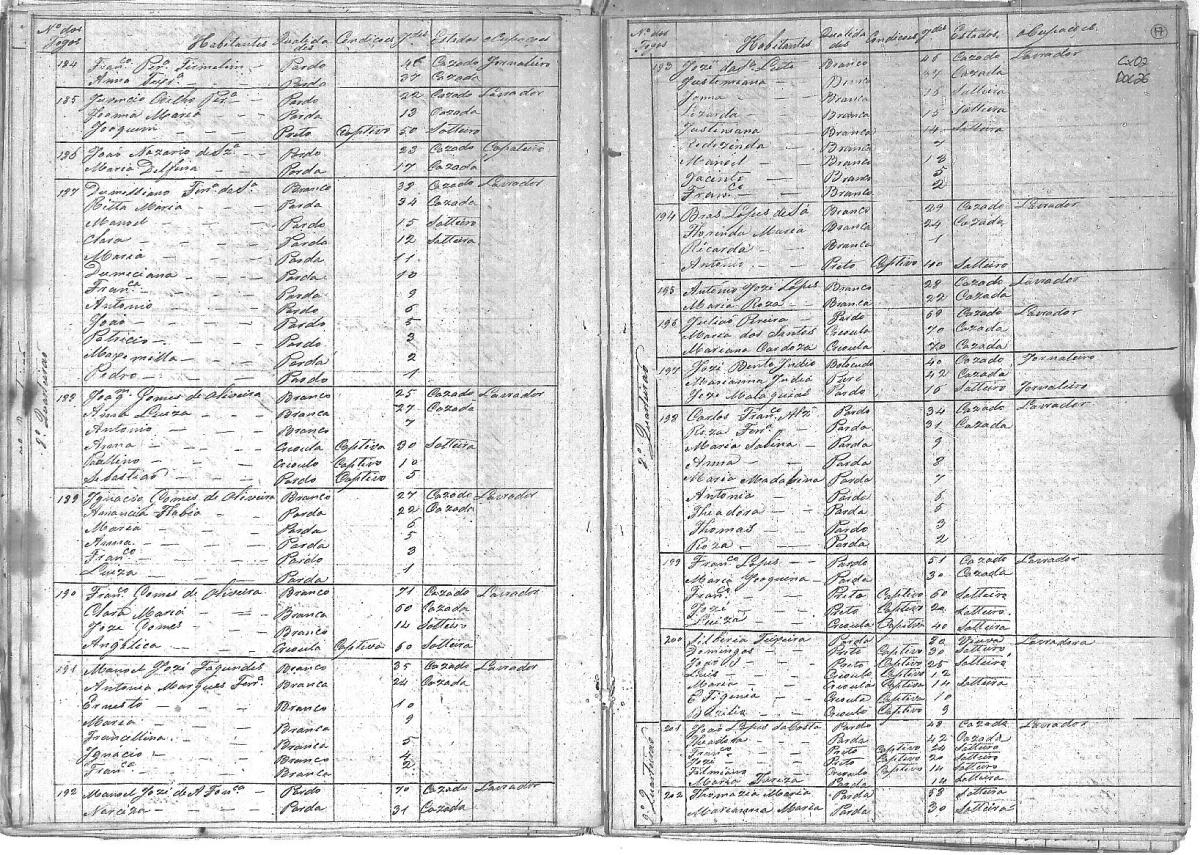 Nº dos Fogos Habitantes Qualidades Condicoes Jdes Estados Ocupacoes
184 Franco Pera Pardo 46 Cazado Jornaleiro
Anna Parda 37 Cazada
185 Coelho Pera Pardo 22 Cazado Lavrador
Joanna Maria Parda 13 Cazada
Joaquim Preto Captivo 50 Solteiro
186 João Nazario de Sza Pardo 23 Cazado Capateiro
Maria Delfina Parda 17 Cazada
187 Dumissiano Branco 39 Cazado Lavrador
Ritta Maria Parda 34 Cazada
Manoel Pardo 15 Solteiro
Clara Parda 12 Solteira
Maria Parda 11
Dumiciana Parda 10
Franca Parda 9
Antonio Pardo 6
João Pardo 5
Patricio Pardo 3
Maxemilla Parda 2
Pedro Pardo 1
188 Joaqm Gomes de Oliveira Branco 25 Cazado Lavrador
Anna Luiza Branca 27 Cazada
Antonio Branco 7
Anna Creoula Captiva 30 Solteira
Creoulo Captivo 10
Sebastião Pardo Captivo 5
189 Ignacio Gomes de Oliveira Branco 27 Cazado Lavrador
Amancia Flabia Parda 22 Cazada
Maria Parda 6
Anna Parda 5
Franco Pardo 3
Luiza Parda 1
190 Franco Gomes de Oliveira Branco 71 Cazado Lavrador
Clara Maria Branca 60 Cazada
Joze Gomes Branco 14 Solteiro
Angelica Creoula Captiva 60 Solteira
191 Manoel Jozé Fagundes Branco 35 Cazado Lavrador
Antonia Marques Branca 24 Cazada
Ernesto Branco 10
Maria Branca 9
Francellina Branca 5
Ignacio Branco 4
Franca Branca 2
192 Manoel Jozé de Pardo 70 Cazado Lavrador
Narciza Parda 31 Cazada
8º Quarteirão
Nº dos Fogos Habitantes Qualidades Condicoes Jdes Estados Ocupacoes 17
193 Jozé da Branco 46 Cazado Lavrador
Cx07
Justiniana Branca 37 Cazada
Doc26
Branca 16 Solteira
Lizarda Branca 15 Solteira
Justiniana Branca 14 Solteira
Branca 7
Manoel Branco
Jacinto Branco 5
Franca Branca 2
194 Bras Lopes de Sá Branco 29 Cazado Lavrador
Florinda Maria Branca 24 Cazada
Ricarda Branca 1
Antonio Preto Captivo 100 Solteiro
195 Antonio Jozé Lopes Branco 28 Cazado Lavrador
Maria Roza Branca 22 Cazada
196 Julião Pereira Pardo 69 Cazado Lavrador
Maria dos Santos Creoula 70 Cazada
Mariana Cardoza Creoula 70 Cazada
197 Jozé Bento Indio Botocudo 40 Cazado Jornaleiro
Marianna India Puri 42 Cazada
Joze Malaquias Pardo 16 Solteiro Jornaleiro
198 Carlos Franco Alz Pardo 34 Cazado Lavrador
Roza Parda 31 Cazada
Maria Sabina Parda 9
Anna Parda 8
Maria Madalena Parda 7
Antonia Parda 6
Theadora Parda 5
Thomas Pardo 3
Roza Parda 2
199 Franco Lopes Pardo 51 Cazado Lavrador
Maria Joaquina Parda 30 Cazada
Franco Preto Captivo 60 Solteiro
Jozé Preto Captivo 20 Solteiro
Luiza Creoula Captiva 40 Solteira
200 Silveria Teixeira Parda 50 Viuva Lavradora
Domingos Preto Captivo 30 Solteiro
João Preto Captivo 25 Solteiro
Luis Creoulo Captivo 12
Maria Creoula Captiva 14 Solteira
Efigenia Creoula Captiva 10
Bazilio Creoulo Captivo 9
201 João Lopes da Costa Pardo 48 Cazado Lavrador
Theadora Parda 42 Cazada
Franco Preto Captivo 24 Solteiro
Jozé Preto Captivo 20 Solteiro
Firmiano Creoulo Captivo 14 Solteiro
Maria Tareza Parda 14 Solteira
202 Thomazia Maria Parda 58 Solteira
Marianna Maria Parda 30 Solteira
8º Quarteirão
9º Quarteirão